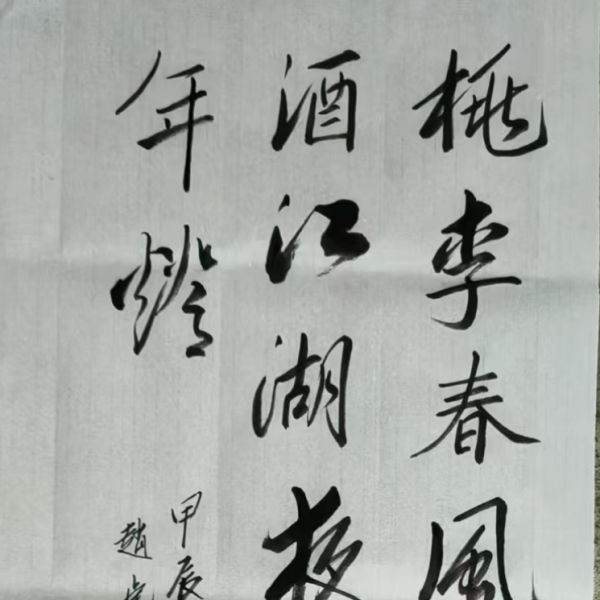 桃李春風
酒江湖夜
年燈
甲辰
趙